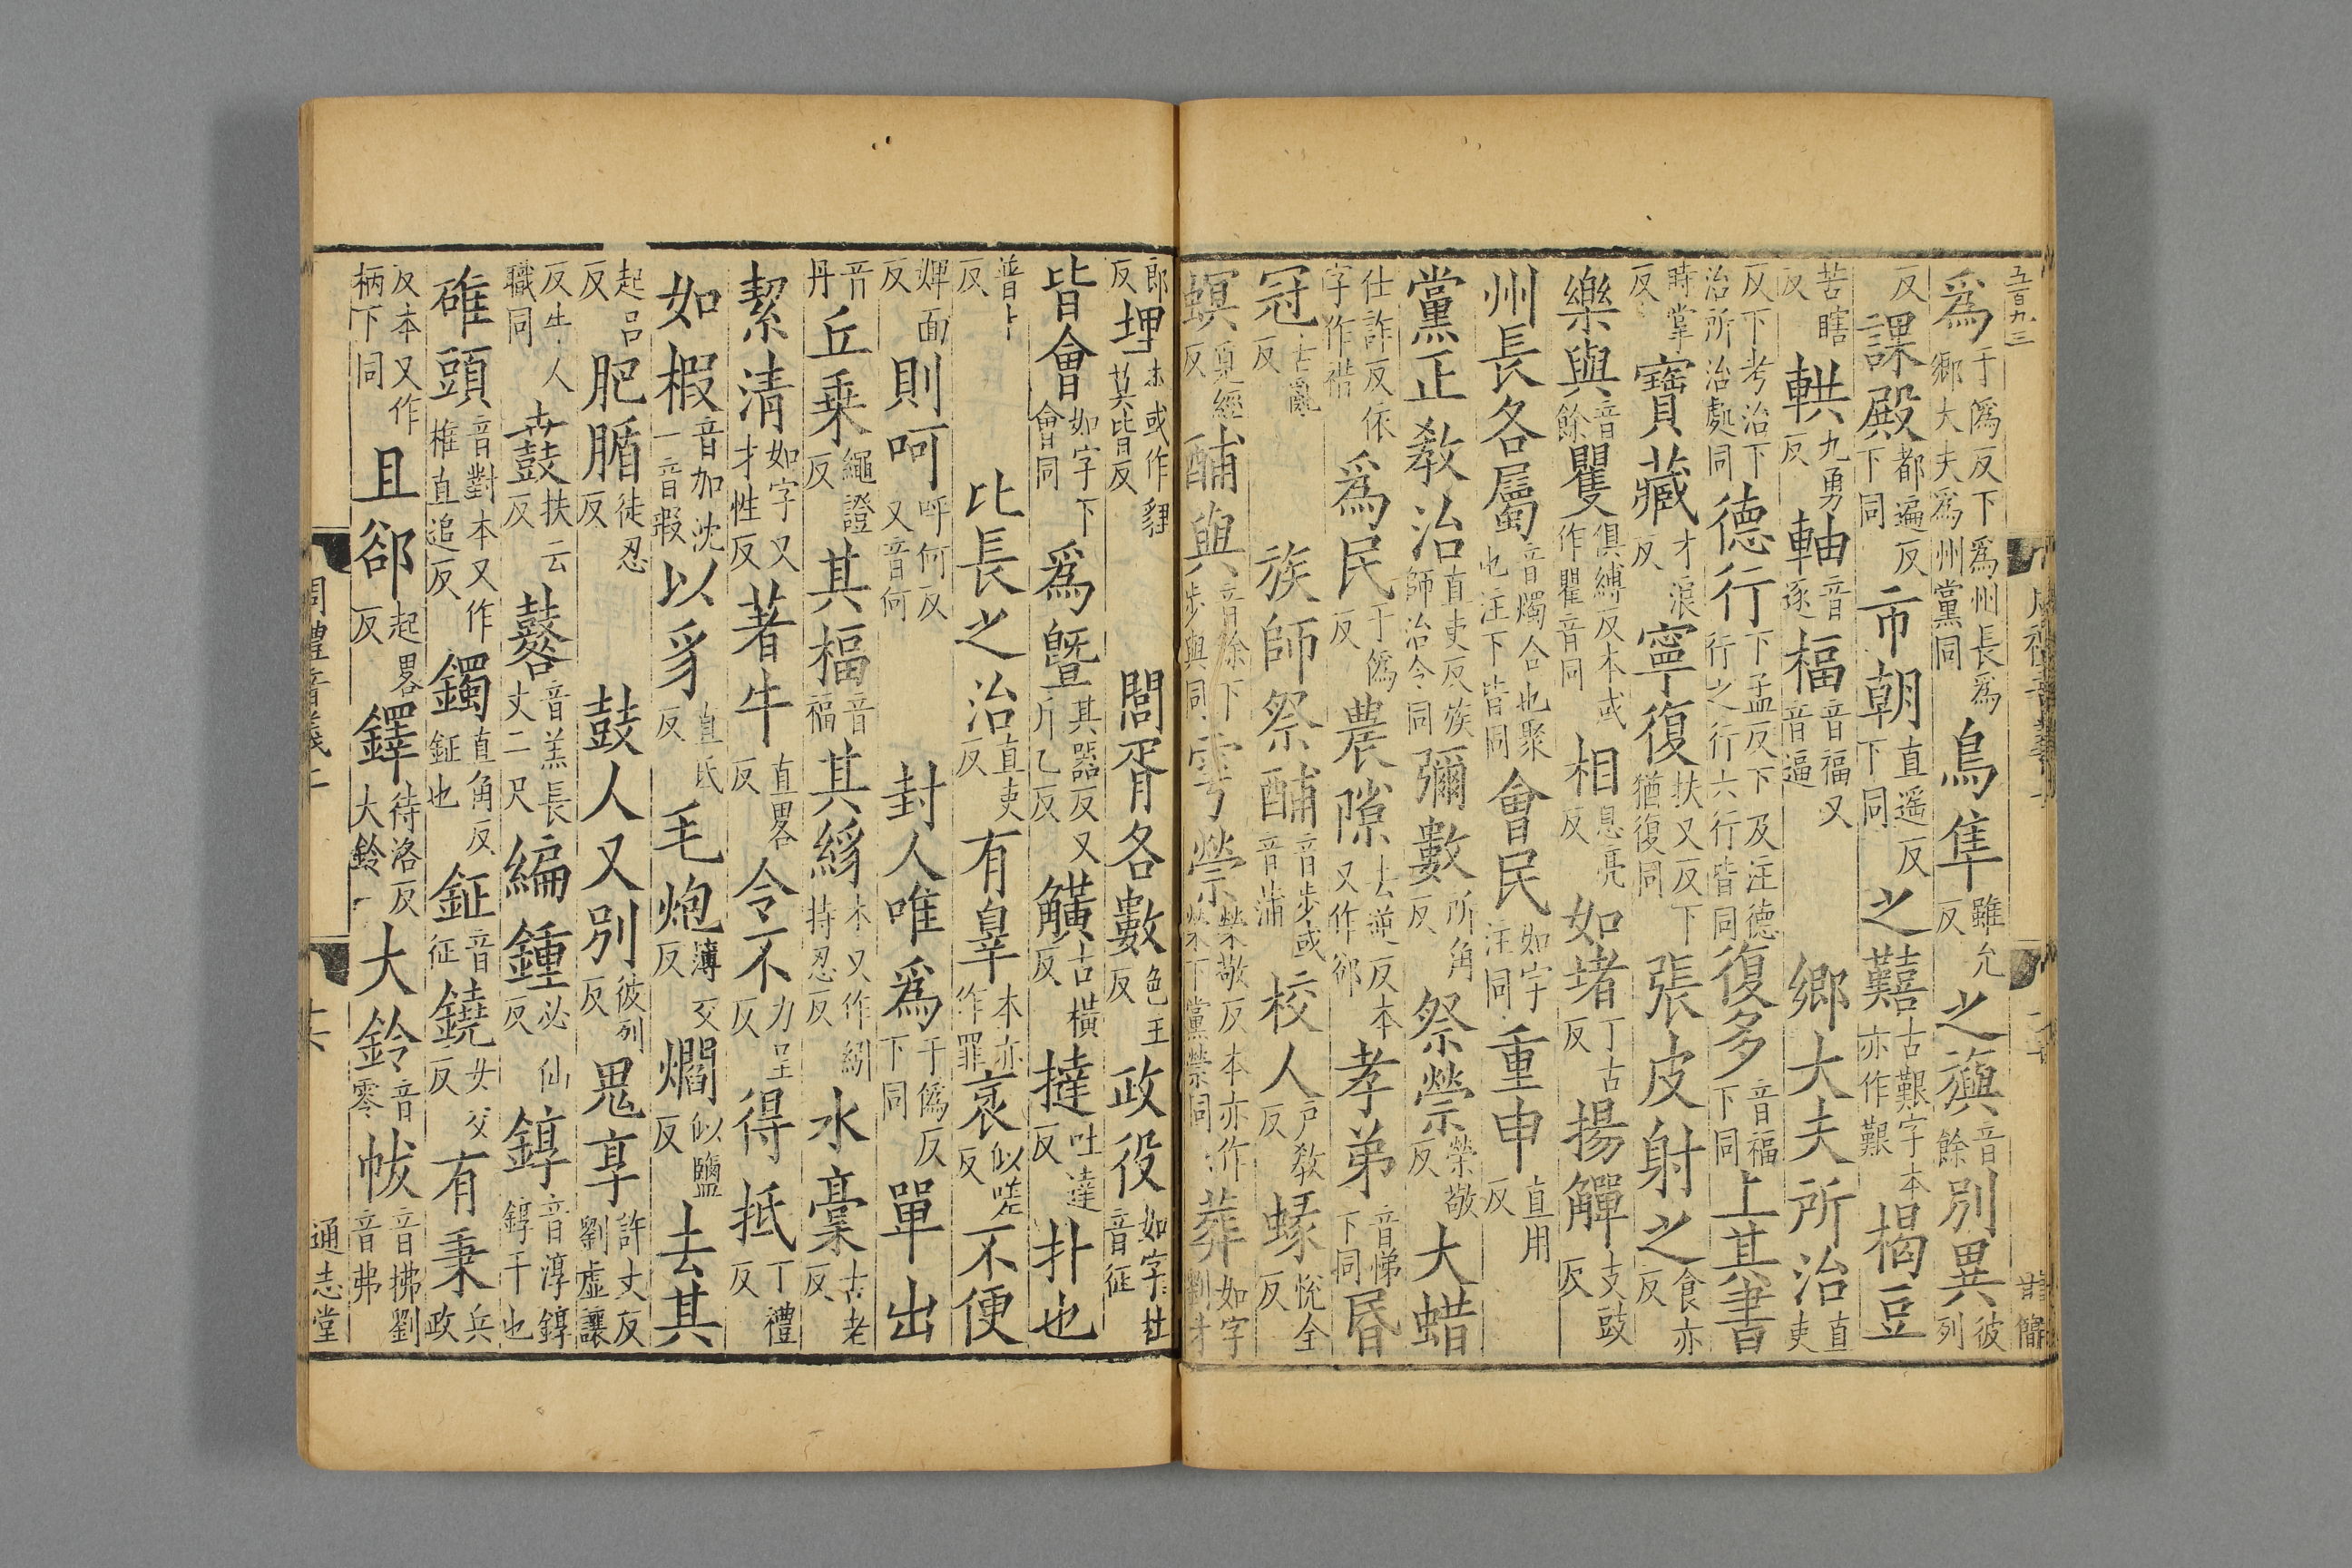 五百九三
爲于僞反下爲州長爲鄉大夫爲州黨同鳥隼雖允反之旟音餘別異彼列
反課殿都遍反下同市朝直遥反下同之囏古艱字本亦作艱楬豆
苦瞎反輁九勇反軸音逐楅音福又音逼鄉大夫所治直吏
反下考治下治所治處同德行下孟反下及注德行之行六行皆同復多音福下同上其書
時掌反寶藏才浪反寧復扶又反下猶復同張皮射之食亦反
樂與音餘矍俱縛反本或作瞿音同相息亮反如堵丁古反揚觶支豉反
州長各屬音燭合也聚也注下皆同會民如字注同重申直用反
黨正敎治直吏反族師治令同彌數所角反祭禜榮敬反大蜡
仕詐反依字作䄍爲民于僞反農隙去逆反本又作郤孝弟音悌下同昬
冠古亂反族師祭酺音步或音蒲校人戶敎反蝝悅全反
螟覓經反酺與音餘下步與同雩禜榮敬反本亦作禜下黨禜同葬如字劉才
郎反埋本或作貍莫皆反閭胥各數色主反政役如字杜音征
皆會如字下會同爲曁其器反又斤乙反觵古橫反撻吐達反扑也
普卜反比長之治直吏反有辠本亦作罪衺似嗟反不便
婢面反則呵呼何反又音何封人唯爲于僞反下同單出
音丹丘乗繩證反其楅音福其絼本又作紖持忍反水槀古老反
絜清如字又才性反著牛直畧反令不力呈反得抵丁禮反
如椵音加沈一音假以豸直氏反毛炮薄交反爓似鹽反去其
起呂反肥腯徒忍反鼓人又別彼列反鬼享許丈反劉虛讓
反牛人職同鼖扶云反鼛音羔長丈二尺編鍾必仙反錞音淳錞錞于也
碓頭音對本又作椎直追反鐲直角反鉦也鉦音征鐃女交反有秉兵政
反本又作柄下同且郤起畧反鐸待洛反大鈴大鈴音零帗音拂劉音弗
周禮音義上
十六
通志堂